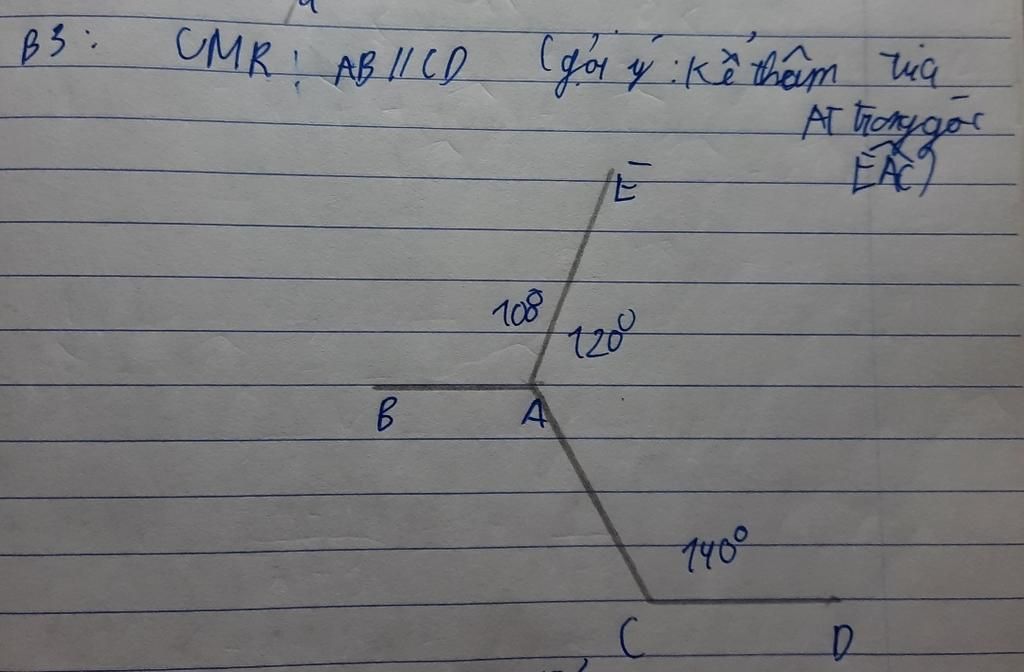 B3: CMR: AB//CD (gợi ý: kẻ thêm tia
AT trong góc
EAC)
E
108°
120°
B
A
140°
C
D